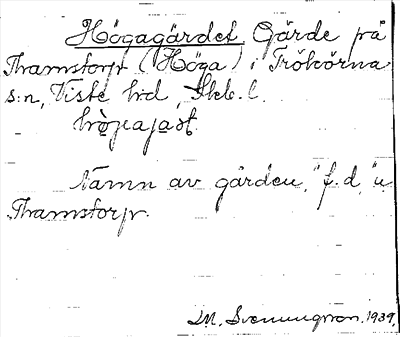 Högagärdet Gärde på
Thamstorp (Höga) i Trökörna
s:n, Viste hd, Skb. l.

Namn av gärden, "f. d.,"
Thamstorp.
M. Svenungsson. 1939.